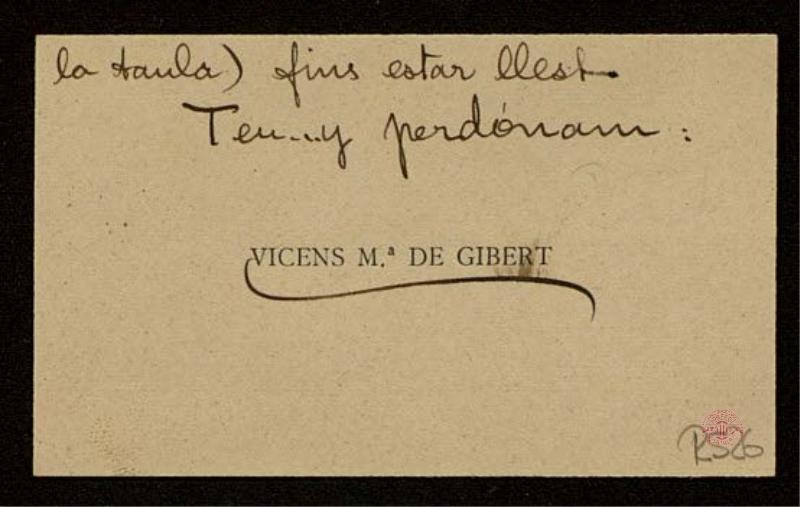 la taula) fins estar llest.
Teu...y perdónam:
VICENS M.ª DE GIBERT
R526